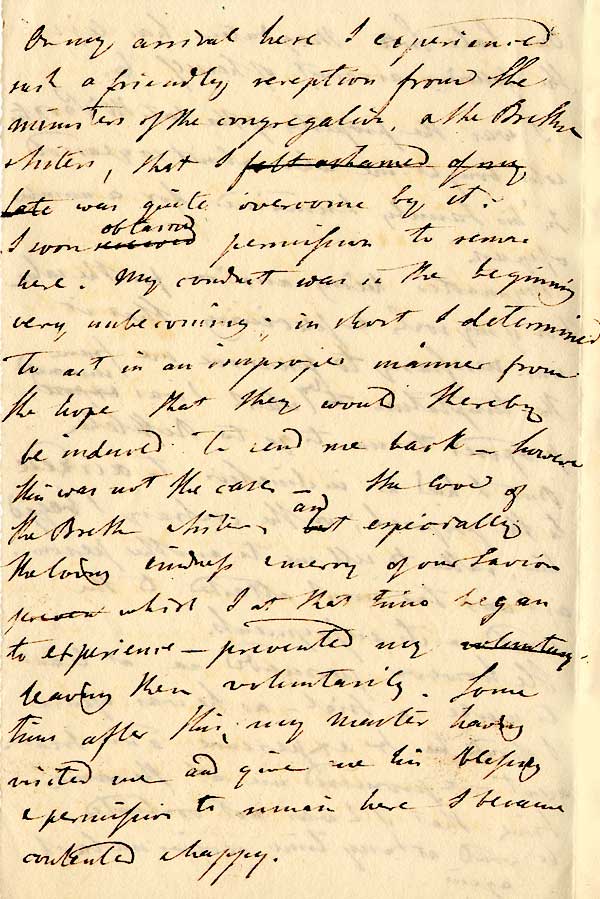 On my arrival here I experienced
such a friendly reception from the
ministers of the congregation, & the Brethn
& sisters, that I felt ashamed of my
late was quite overcome by it.
obtained
I soon received permission to remove
here. My conduct was in the beginning
very unbecoming; in short I determined
to act in an improper manner from
the hope that they would thereby
be induced to send me back – however
this was not the case – the love of
and
the Breth & sisters, but especially
the loving kindness & mercy of our Saviour
which I at that time began
to experience – prevented my voluntary
leaving them voluntarily. Some
time after this, my master having
visited me and give me his blessing
& permission to remain here I became
contented & happy.